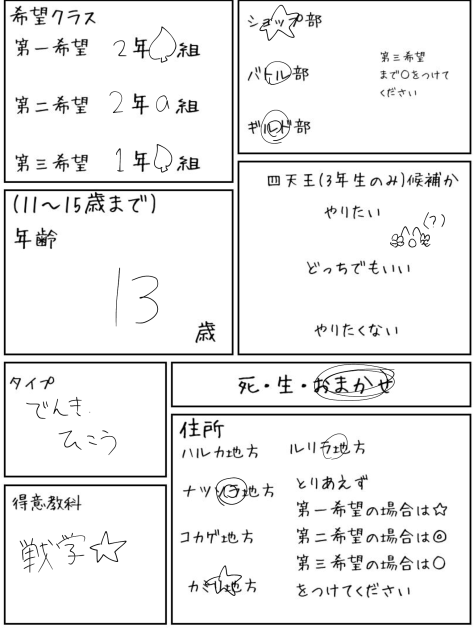 希望クラス
第一希望 2年♤組
第二希望 2年a組
第三希望 1年♤組
ショップ部
バトル部
ギルド部
第三希望
まで○をつけて
ください
(11〜15歳まで)
年齢
13
歳
四天王(3年生のみ)候補か
やりたい
(?)
どっちでもいい
やりたくない
タイプ
でんき
ひこう
死・生・おまかせ
得意教科
戦学☆
住所
ハルカ地方
ルリラ地方
ナツゾラ地方
コカゲ地方
とりあえず
第一希望の場合は☆
第二希望の場合は◎
第三希望の場合は○
をつけてください